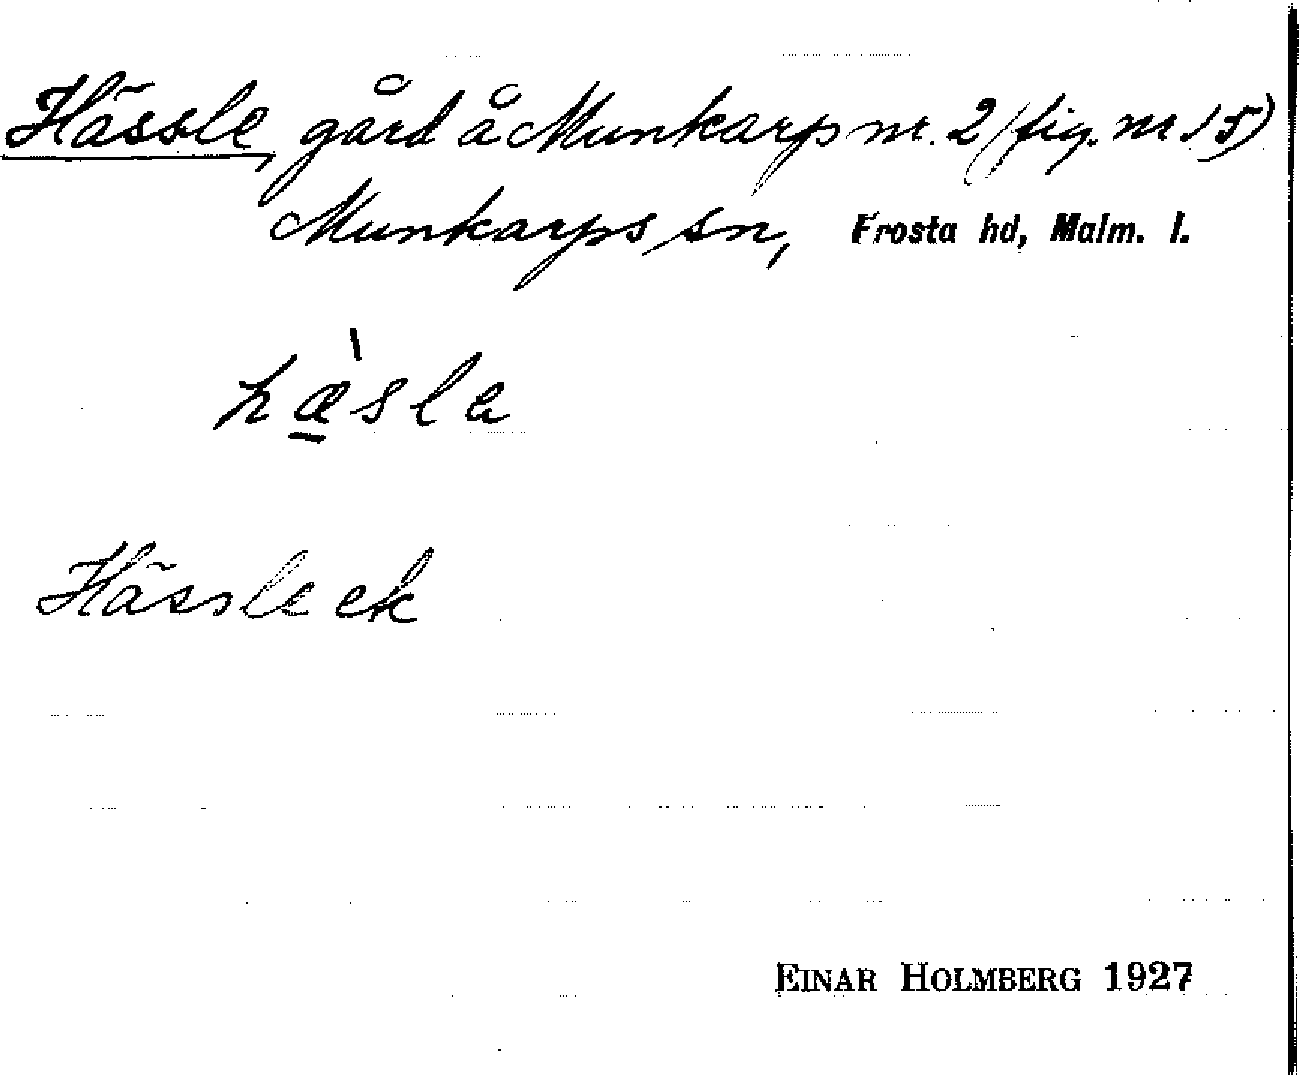 Hässle, gård å Munkarp nr. 2 (fig. nr 15)
Munkarps sn, Frosta hd, Malm. l.
hæ̱̀sla
Hässle ek
EINAR HOLMBERG 1927